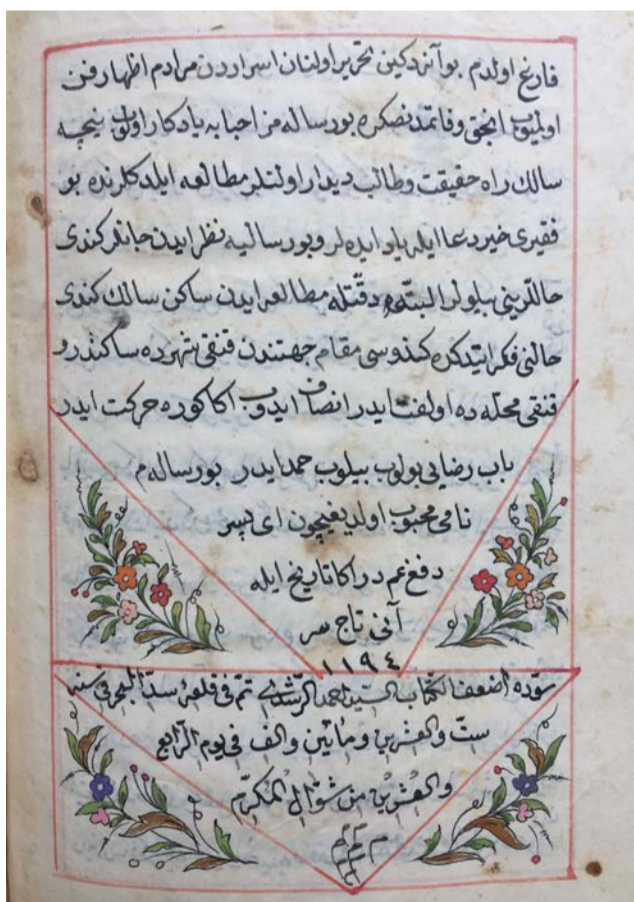 فارغ اولدم بو آنردكین تحریر اولنان اسراردن مرادم اظهار فن
اولمیوب انجق وفاتمدنصكره بو رساله مز احبابه یادكار اولوب نیچه
سالك راه حقیقت وطالب دیدار اولنلر مطالعه ایلدكلرنده بو
فقیری خیر دعا ایله یاد ایده لر وبو رسالیه نظر ایدن جانلر كندی
حاللرینی بیلورلر البته دقتله مطالعه ایدن ساكن سالك كندی
حالنی فكر ایتدكده كندوسی مقام جهتندن قنقی شهرده ساكندر و
قنقی محله ده اولفت ایدر انصاف ایدوب اكا كوره حركت ایدر
باب رضایی بولوب بیلوب حمد ایدر بو رساله م
نامی محبوب اولدیغیچون ای پسر
دفع غم در اكا تاریخ ایله
آنی تاج سر
١١٩٤
سوّده اضعف الكتّاب السیّد احمد الرّشدی تمّ فی قلعهٔ سدّ البحر فی سنه
ستّ والعشرین ومأتین والف فی یوم الرّابع
والعشرین من شوّال المكرّم